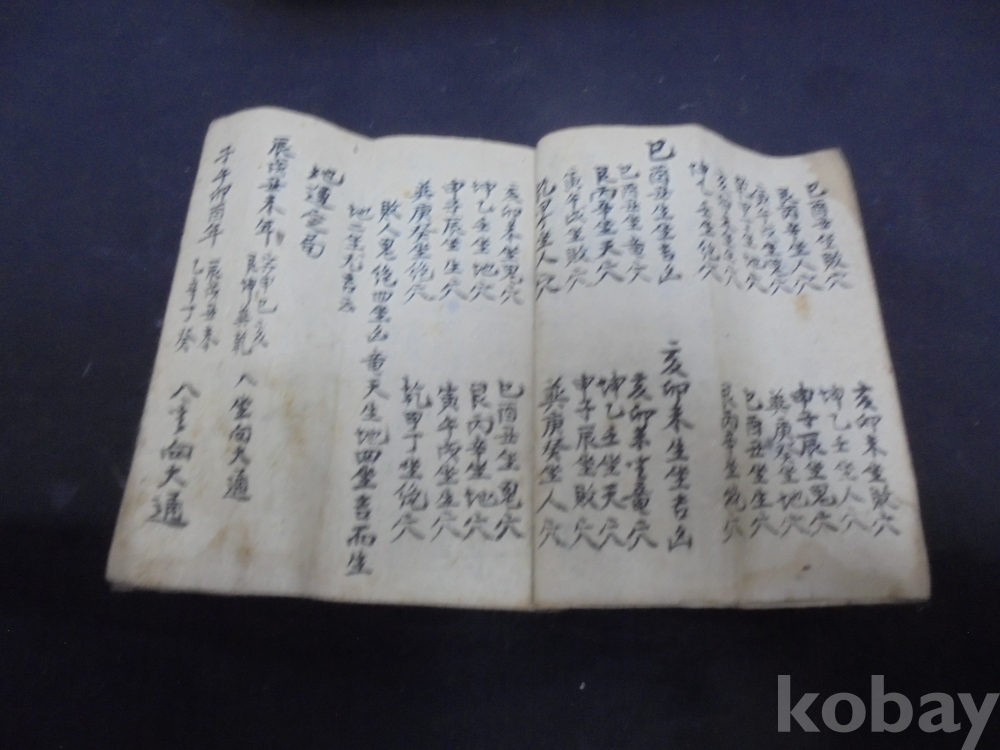 亥卯未坐敗穴
坤乙壬坐人穴
申子辰坐鬼穴
巽庚癸坐地穴
巳酉丑坐生穴
艮丙辛坐絶穴
巳酉丑坐敗穴
艮丙辛坐人穴
坤乙壬坐絶穴
巳酉丑生坐吉凶
巳酉丑坐黄穴
艮丙辛坐天穴
寅午戌坐敗穴
乾甲丁坐人穴
亥卯未生坐吉凶
亥卯未坐黄穴
坤乙壬坐天穴
申子辰坐敗穴
巽庚癸坐人穴
亥卯未坐鬼穴
坤乙壬坐地穴
申子辰坐生穴
巽庚癸坐絶穴
巳酉丑坐鬼穴
艮丙辛坐地穴
寅午戌坐生穴
乾甲丁坐絶穴
敗人鬼絶四坐凶黄天生地四坐吉而生
地運
辰戌丑未年
寅申巳亥
艮坤巽乾
八坐向大通
子午卯酉年
辰戌丑未
乙辛丁癸
八坐向大通
kobay